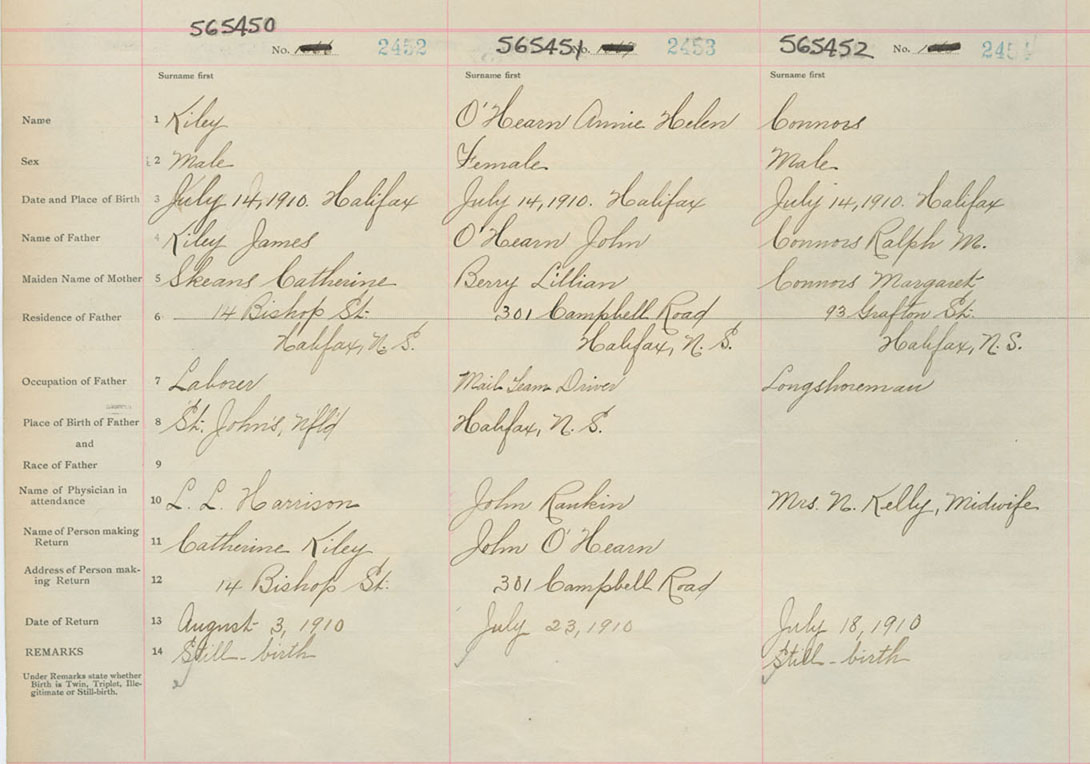 565450 No. 2452 565451 No. 2453 565452 No. 245
Surname first Surname first Surname first
Name 1 Kiley O'Hearn Annie Helen Connors
Sex 2 Male Female Male
Date and Place of Birth 3 July 14, 1910. Halifax July 14, 1910. Halifax July 14, 1910. Halifax
Name of Father 4 Kiley James O'Hearn John Connors Ralph M.
Maiden Name of Mother 5 Skeans Catherine Berry Lillian Connors Margaret
Residence of Father 6 14 Bishop St. 301 Campbell Road 93 Grafton St.
Halifax, N. S. Halifax, N. S. Halifax, N. S.
Occupation of Father 7 Laborer Mail Team Driver Longshoreman
Place of Birth of Father 8 St. John's, Nfld Halifax, N. S.
and
Race of Father 9
Name of Physician in
attendance 10 L. L. Harrison John Rankin Mrs. N. Kelly, Midwife
Name of Person making
Return 11 Catherine Kiley John O'Hearn
Address of Person mak-
ing Return 12 14 Bishop St. 301 Campbell Road
Date of Return 13 August 3, 1910 July 23, 1910 July 18, 1910
REMARKS 14 Still-birth Still-birth
Under Remarks state whether
Birth is Twin, Triplet, Ille-
gitimate or Still-birth.